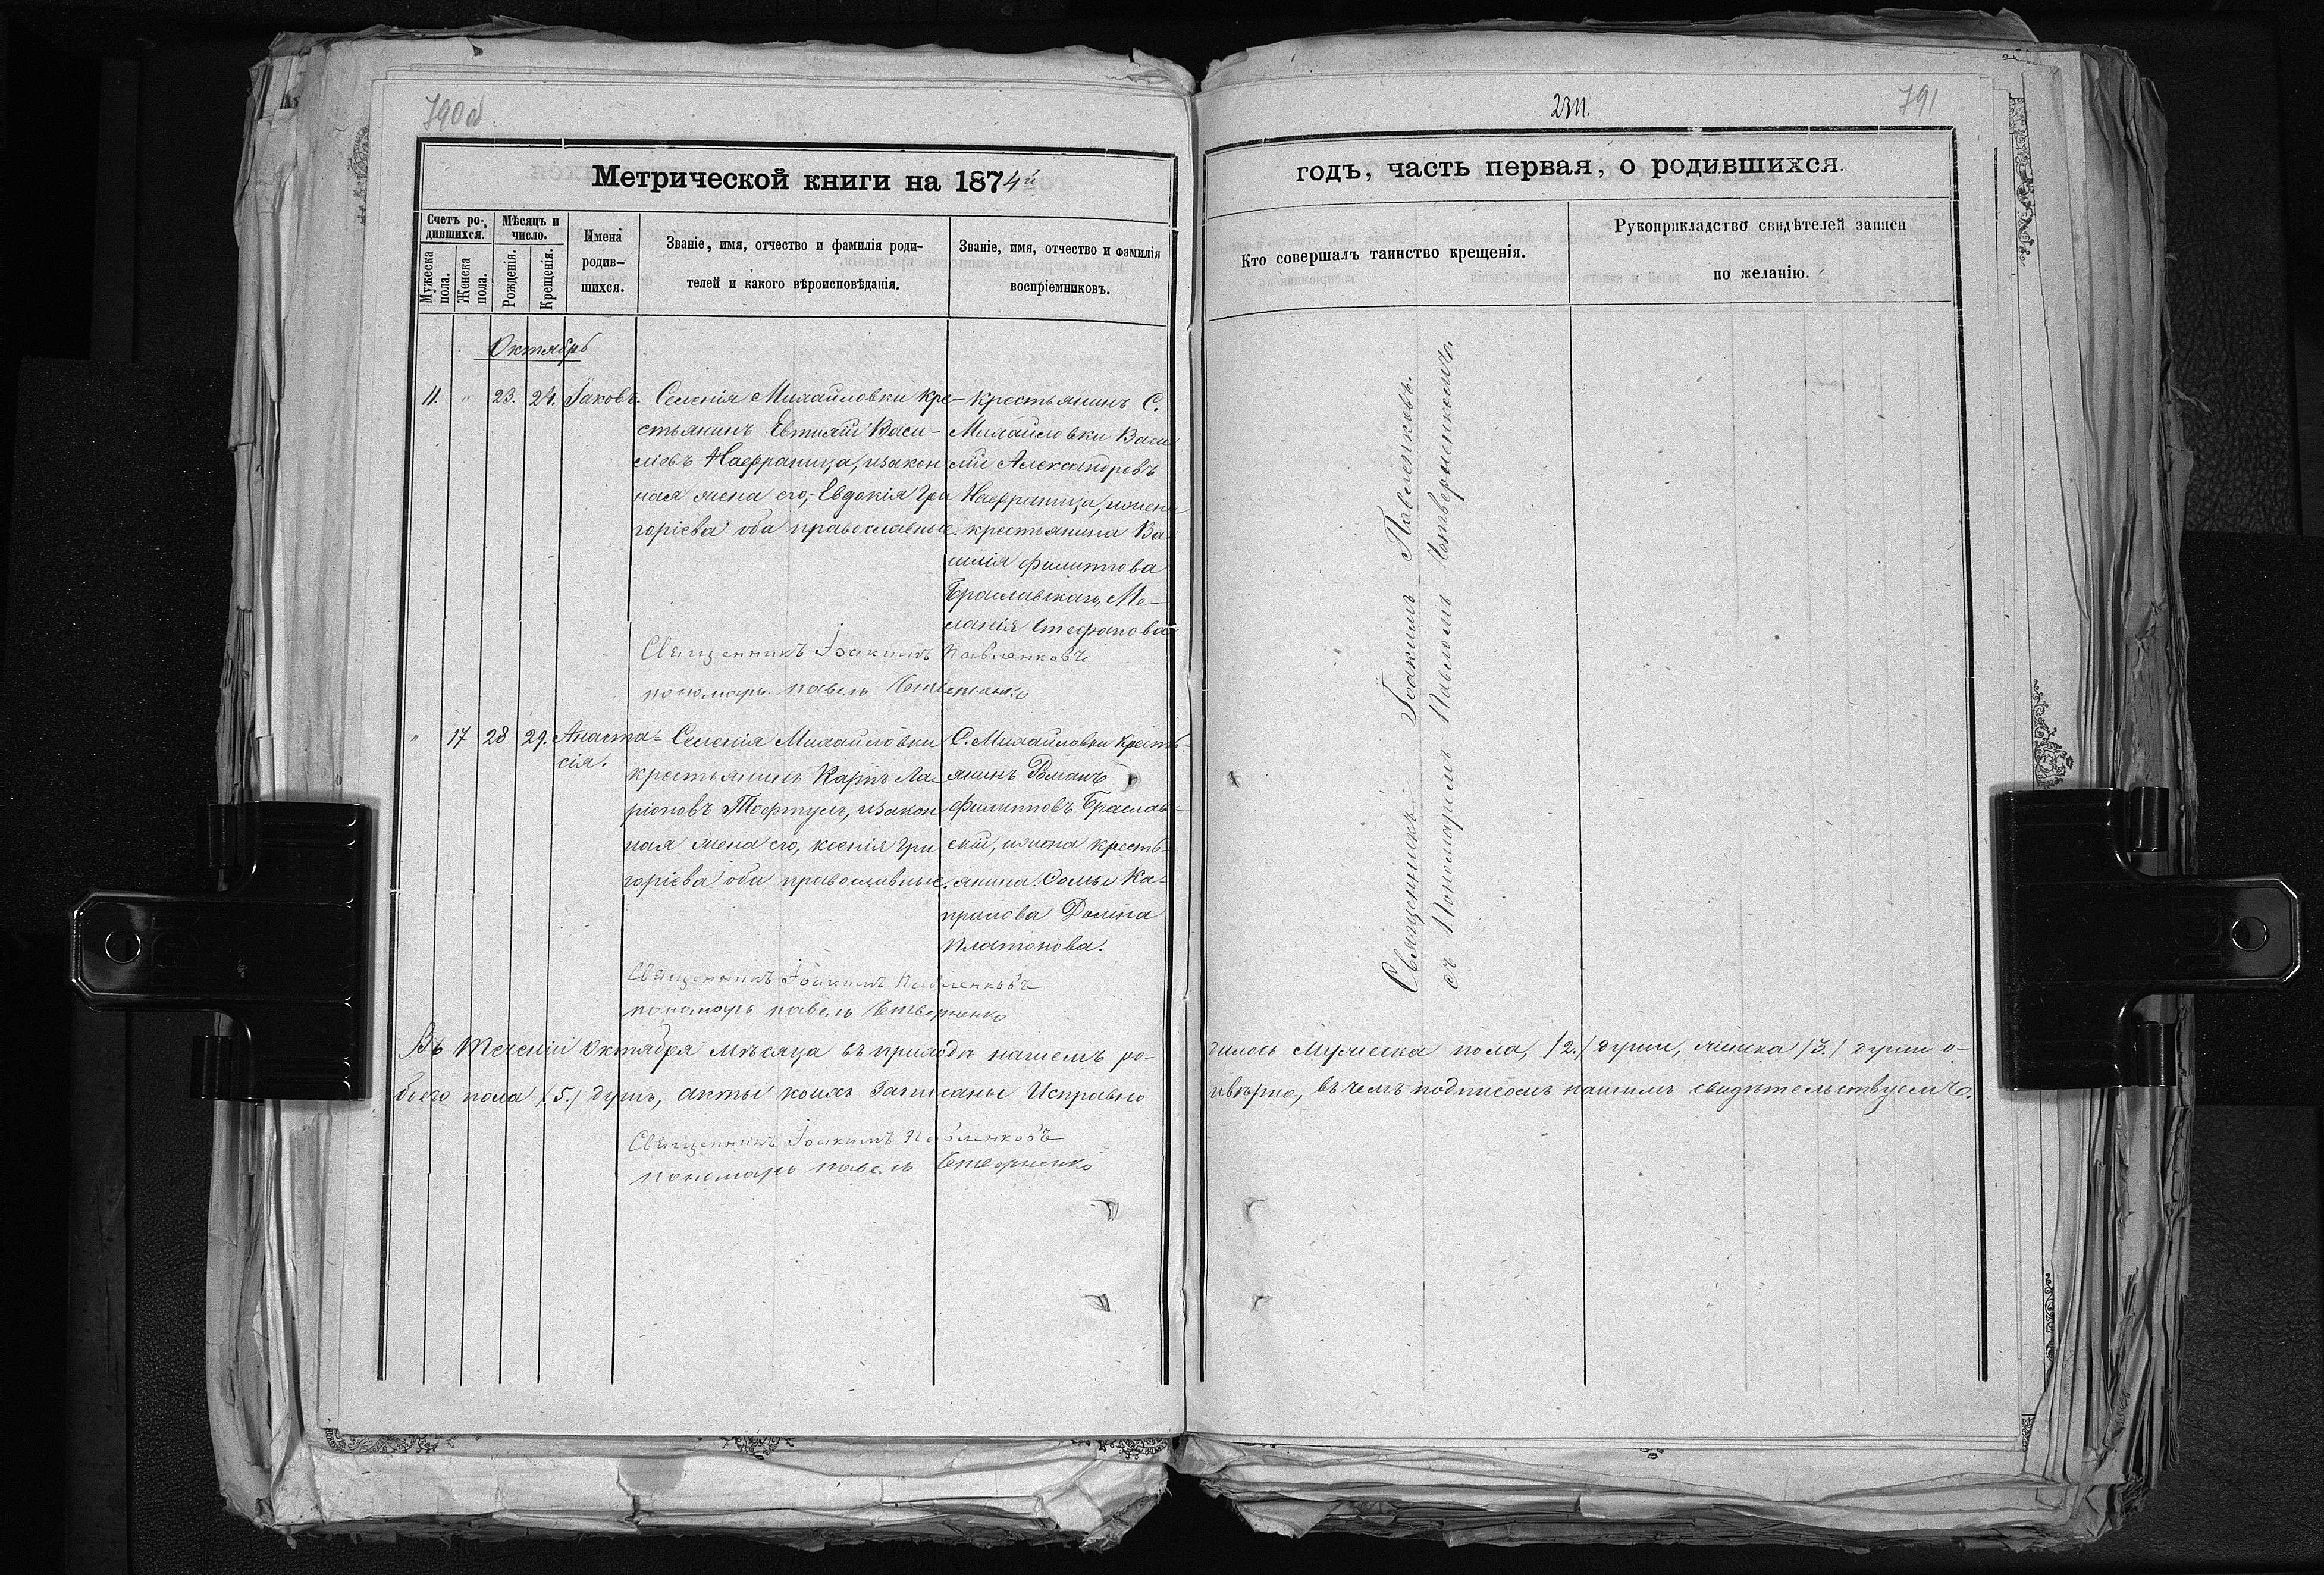 790об
Метрической книги на 1874й
Счетъ ро-
дившихся.
Мужеска
пола.
Женска
пола.
Мѣсяцъ и
число.
Рожденія.
Крещенія.
Имена
родив-
шихся.
Званіе, имя, отчество и фамилія роди-
телей и какого вѣроисповѣданія.
Званіе, имя, отчество и фамилія
воспріемниковъ.
Октябрь
11. " 23. 24. Іаковъ.
Селенія Михайловки кре-
стьянинъ Евтихій Васи-
ліевъ, изакон
ная жена его, Евдокія Гри
горіева оба православные.
Крестьянинъ С.
Михайловки Васи
лій Александровъ
ижена
крестьянина Ва
силія Филиппова
Браславскаго, Ме-
ланія Стефанова
Священникъ Іоакимъ Павленковъ
пономарь павелъ Четверненко
" 17 28 29. Анаста-
сія.
Селенія Михайловки
крестьянинъ Карпъ Ла-
ріоновъ, изакон
ная жена его, ксенія Гри
горіева оба православные.
С. Михайловки Кресть-
янинъ Романъ
Филипповъ Браслав-
скій, ижена кресть-
янина Фомы Ка-
пралова Домна
Платонова.
Священникъ Іоакимъ Павленковъ
пономарь павелъ Четверненко
Въ теченіи Октября мѣсяца въ приходѣ нашемъ ро-
боего пола (5.) душъ, акты коихъ записаны Исправно
Священникъ Іоакимъ Павленковъ
пономарь павелъ Четверненко
231.
791
годъ, часть первая, о родившихся.
Кто совершалъ таинство крещенія.
Рукоприкладство свидѣтелей записи
по желанію.
Священникъ Іоакимъ Павленковъ.
съ Пономаремъ Павломъ Четверненкомъ.
дилось Мужеска пола, (2.) души, женска (3.) души о-
ивѣрно, въ чемъ подписомъ нашимъ свидѣтельствуемъ.